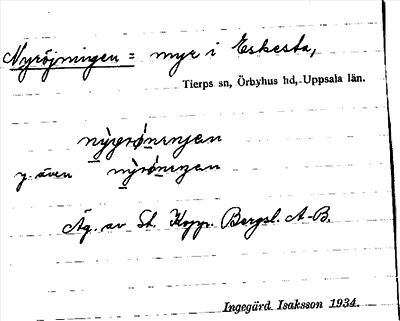 Nyröjningen = myr i Eskesta,
Tierps sn, Örbyhus hd, Uppsala län.
nỳyrö́nıŋen
y. även nỳrö́nıŋen
Äg. av St. Kopp. Bergsl. A-B.
Ingegärd Isaksson 1934.